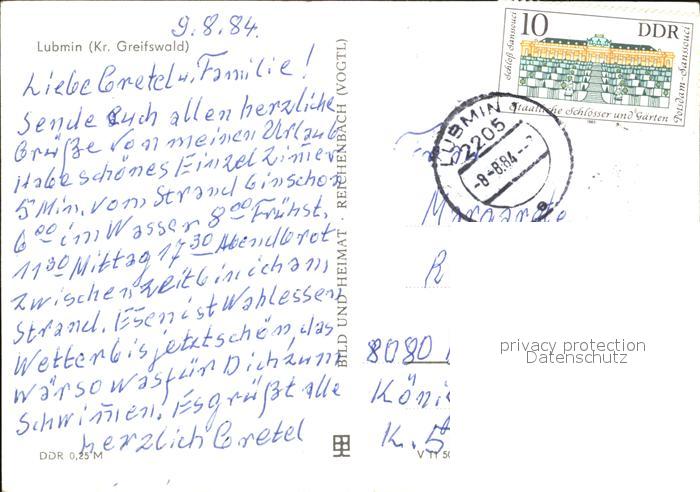 9.8.84.
Lubmin (Kr. Greifswald)
Liebe Gretel u. Familie!
Sende Euch allen herzliche
Grüße von meinen Urlaub
Habe schönes Einzelzimer
5 Min. vom Strand bin schon
6 00 im Wasser 8 00 Frühst.
11 30 Mittag 17 30 Abendbrot
zwischenzeitl bin ich am
Strand. Esen ist Wahlessen
Wetter bis jetzt schön das
wär so was für Dich zum
Schwimen. Es grüßt alle
herzlich Gretel
DDR 0,25 M
BILD UND HEIMAT · REICHENBACH (VOGTL)
V 11 50
10 DDR
Schloß Sanssouci
Potsdam-Sanssouci
Staatliche Schlösser und Gärten
LUBMIN 1
2205
-8-8.84
Margarete
R
8080
Köni
K. 5
privacy protection
Datenschutz